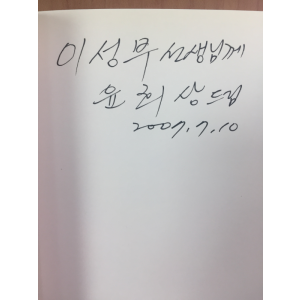 이성부 선생님께
윤희상 드림
2007.7.10